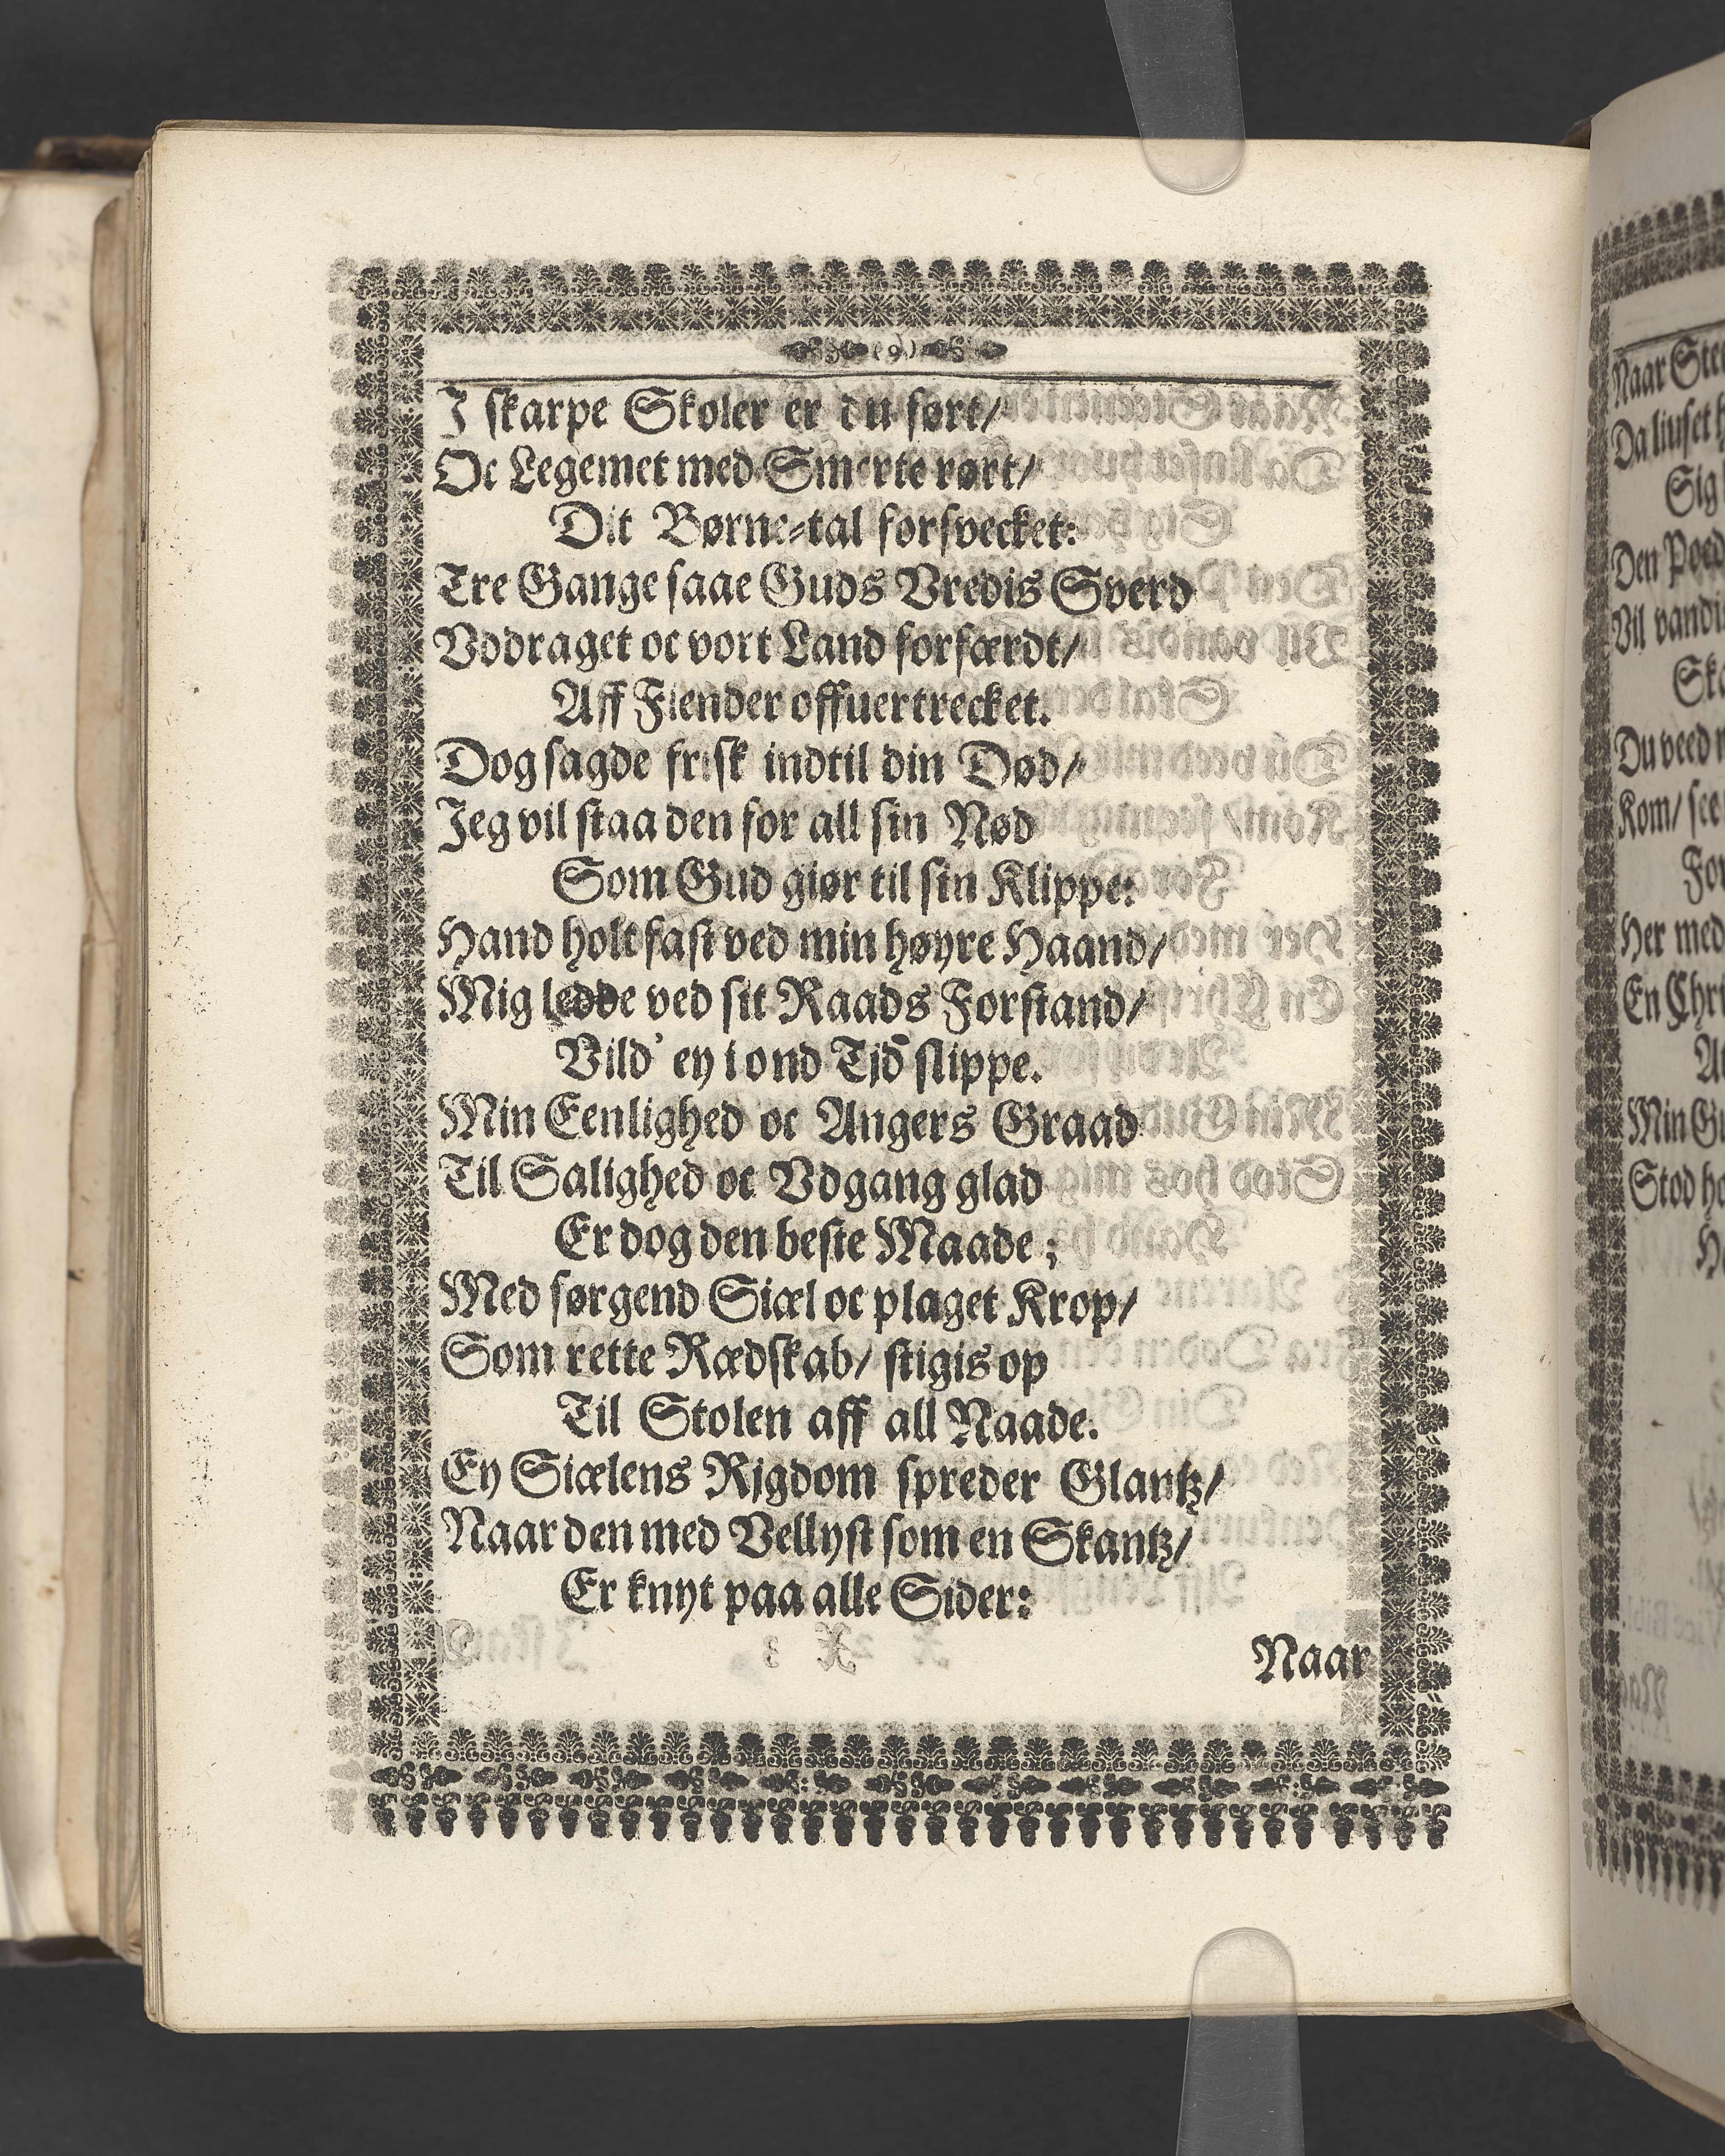 (9)
I skarpe Skoler er du ført/
Oc Legemet med Smerte rørt/
Dit Børne-tal forsvecket:
Tre Gange saae Guds Vredis Sverd
Vddraget oc vort Land forfærdt/
Aff Fiender offuertrecket.
Dog sagde frisk indtil din Død/
Jeg vil staa den for all sin Nød
Som Gud giør til sin Klippe:
Hand holt fast ved min høyre Haand/
Mig ledde ved sit Raads Forstand/
Vild' ey i ond Tjd slippe.
Min Eenlighed oc Angers Graad
Til Salighed oc Vdgang glad
Er dog den beste Maade;
Med sørgend Siæl oc plaget Krop/
Som rette Rædskab/ stigis op
Til Stolen aff all Naade.
Ey Siælens Rjgdom spreder Glantz/
Naar den med Vellyst som en Skantz/
Er knyt paa alle Sider:
Naar
Naar
Da liuset
Sig
Den
Vil
Du veed
Kom/ see
Her med
En
Min
Stod